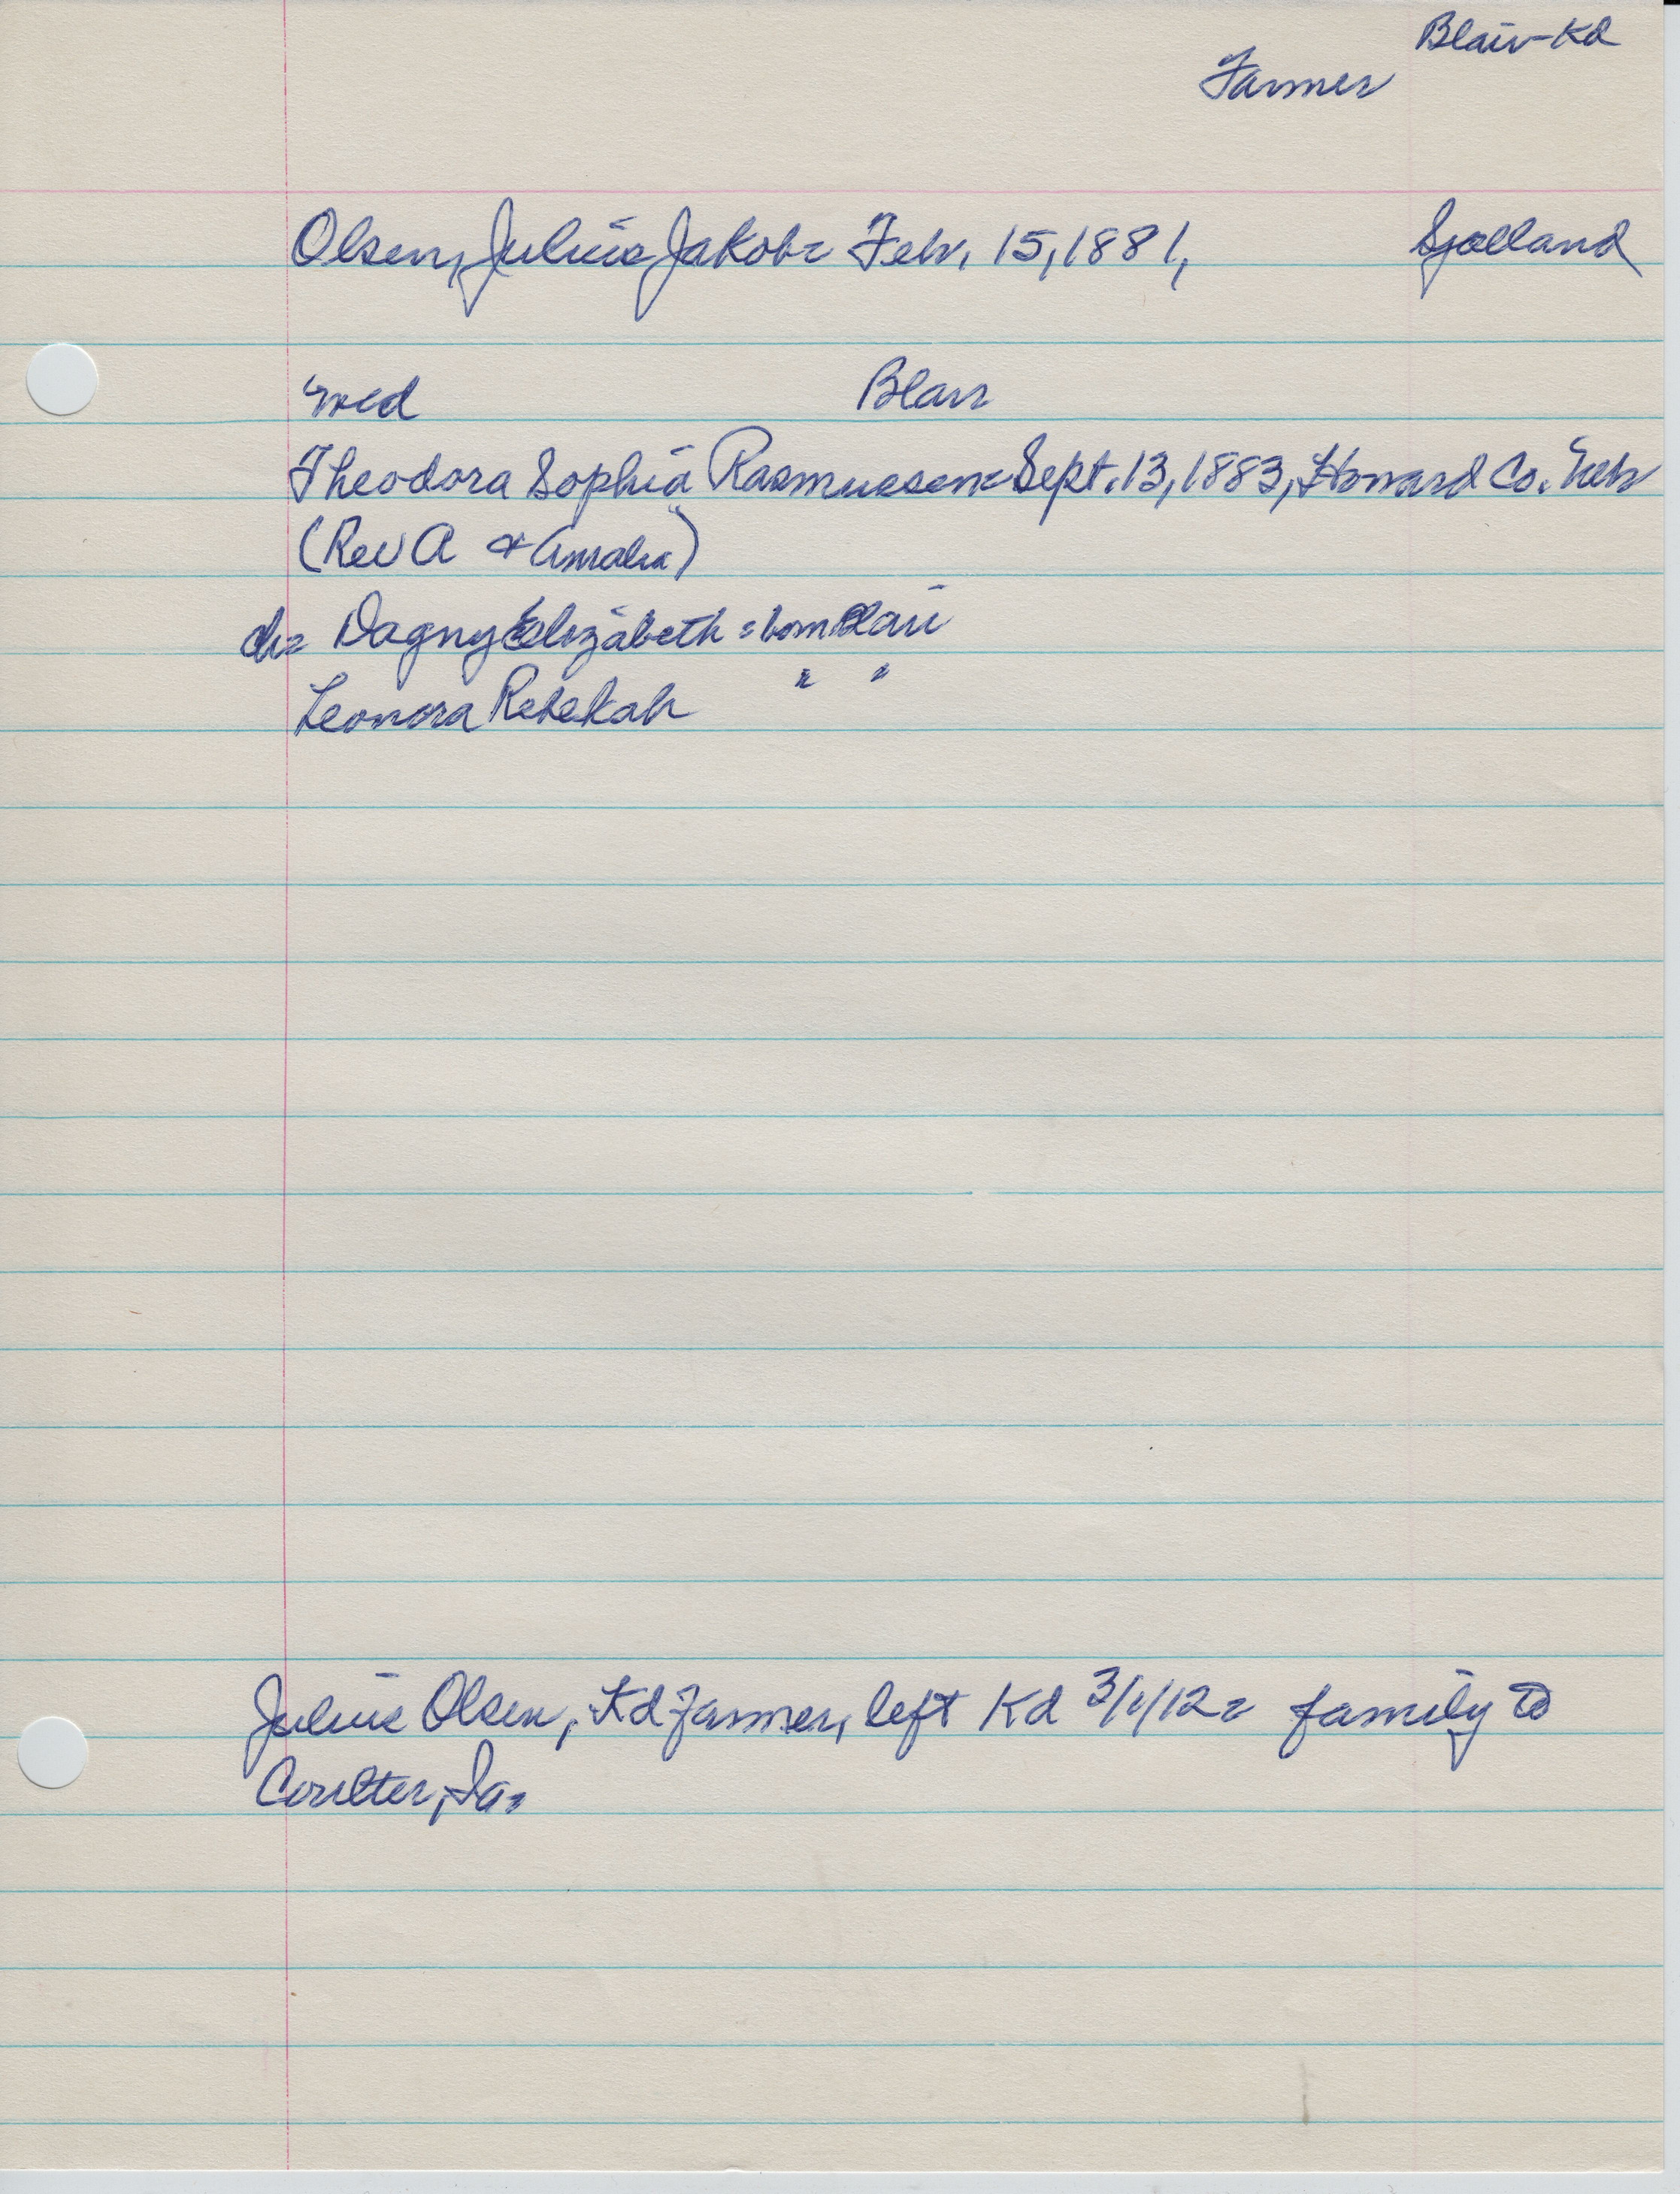 Blair-Kd
Farmer
Olsen, Julius Jakob= Feb. 15, 1881, Sjælland
med Blair
Theodora Sophia Rasmussen= Sept. 13, 1883, Howard Co. Neb
(Rev A & Amalia)
ch= Dagny Elizabeth = born Blair
Leonora Rebekah " "
Julius Olsen, Kd Farmer, left Kd 3/1/12 = family to
Coulter, Ia.